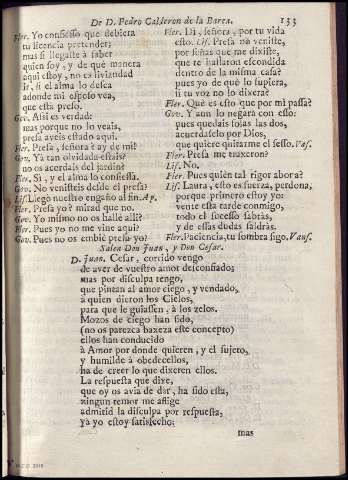 De D. Pedro Calderon de la Barca. 133
Fler. Yo confiesso que debiera
tu licencia pretender;
mas si llegaste à saber
quien soy, y de què manera
aqui estoy, no es liviandad
ir, si el alma lo desea
adonde mi esposo vea,
que està preso.
Gov. Assi es verdad:
mas porque no lo veais,
presa aveis estado aqui.
Fler. Presa, señora? ay de mi!
Gov. Yà tan olvidada estais?
no os acordais del jardin?
Fler. Sì, y el alma lo confiessa.
Gov. No venisteis desde èl presa?
Lis. Llegò nuestro engaño al fin. Ap.
Fler. Presa yo? mirad que no.
Gov. Yo mismo no os hallè alli?
Fler. Pues yo no me vine aqui?
Gov. Pues no os embiè presa yo?
Fler. Di, señora, por tu vida
esto. Lis. Presa no veniste,
por señas que me dixiste,
que te hallaron escondida
dentro de la misma casa?
pues yo de què lo supiera,
si tu voz no lo dixera?
Fler. Què es esto que por mi passa?
Gov. Y aun lo negarà con esso:
pues quedais solas las dos,
acuerdaselo por Dios,
que quiere quitarme el sesso. Vas.
Fler. Presa me traxeron?
Lis. No.
Fler. Pues quièn tal rigor abora?
Lis. Laura, esto es fuerza, perdona,
porque primero estoy yo:
vente esta tarde conmigo,
todo el sucesso sabràs,
y de essas dudas saldràs.
Fler. Paciencia, tu sombra sigo. Vans.
Salen Don Juan, y Don Cesar.
D. Juan. Cesar, corrido vengo
de aver de vuestro amor desconfiado;
mas por disculpa tengo,
que pintan al amor ciego, y vendado,
à quien dieron los Cielos,
para que le guiassen, à los zelos.
Mozos de ciego han sido,
(no os parezca baxeza este concepto)
ellos han conducido
à Amor por donde quieren, y èl sujeto,
y humilde à obedecellos,
ha de creer lo que dixeren ellos.
La respuesta que dixe,
que oy os avia de dàr, ha sido esta,
ningun temor me aflige
admitid la disculpa por respuesta,
yà yo estoy satisfecho;
mas